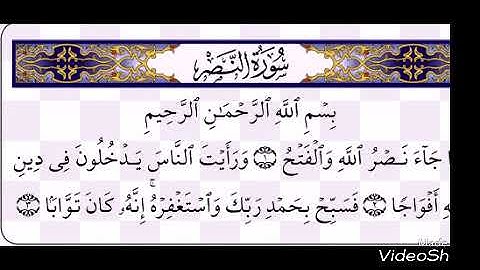 سُورَةُ النَّصْرِ
بِسْمِ ٱللَّهِ ٱلرَّحْمَـٰنِ ٱلرَّحِيمِ
جَآءَ نَصْرُ ٱللَّهِ وَٱلْفَتْحُ ١ وَرَأَيْتَ ٱلنَّاسَ يَدْخُلُونَ فِى دِينِ
أَفْوَاجًا ٢ فَسَبِّحْ بِحَمْدِ رَبِّكَ وَٱسْتَغْفِرْهُ ۚ إِنَّهُۥ كَانَ تَوَّابًۢا ٣
Made
VideoSh